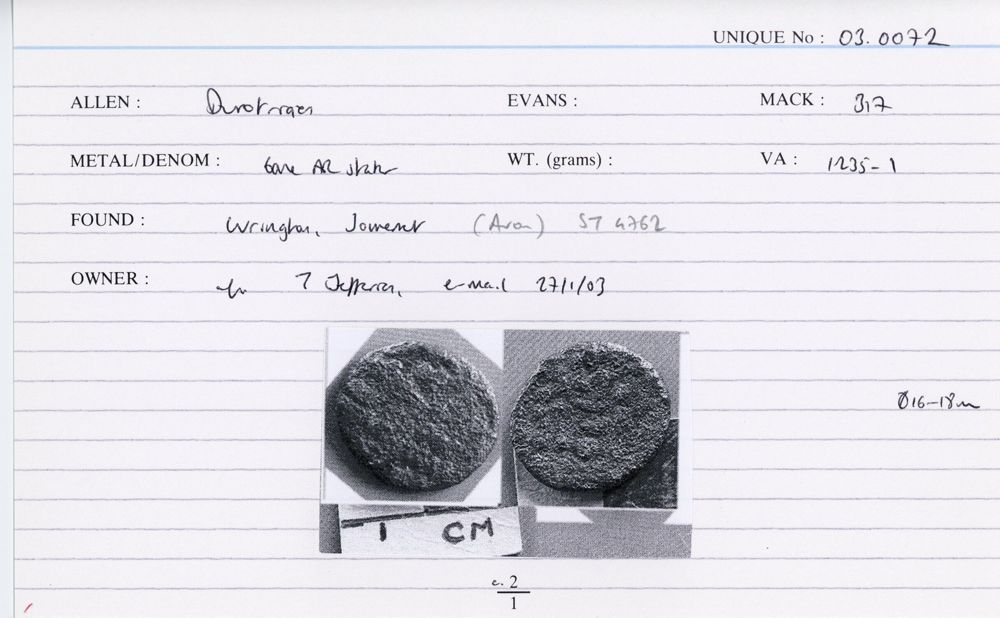 UNIQUE No : 03.0072
ALLEN : Durotriges EVANS : MACK : 317
METAL/DENOM : base AR stater WT. (grams) : VA : 1235-1
FOUND : Wrington, Somerset (Avon) ST 4762
OWNER : T Jefferson, e-mail 27/1/03
Ø16-18m
1 CM
c. 2
1